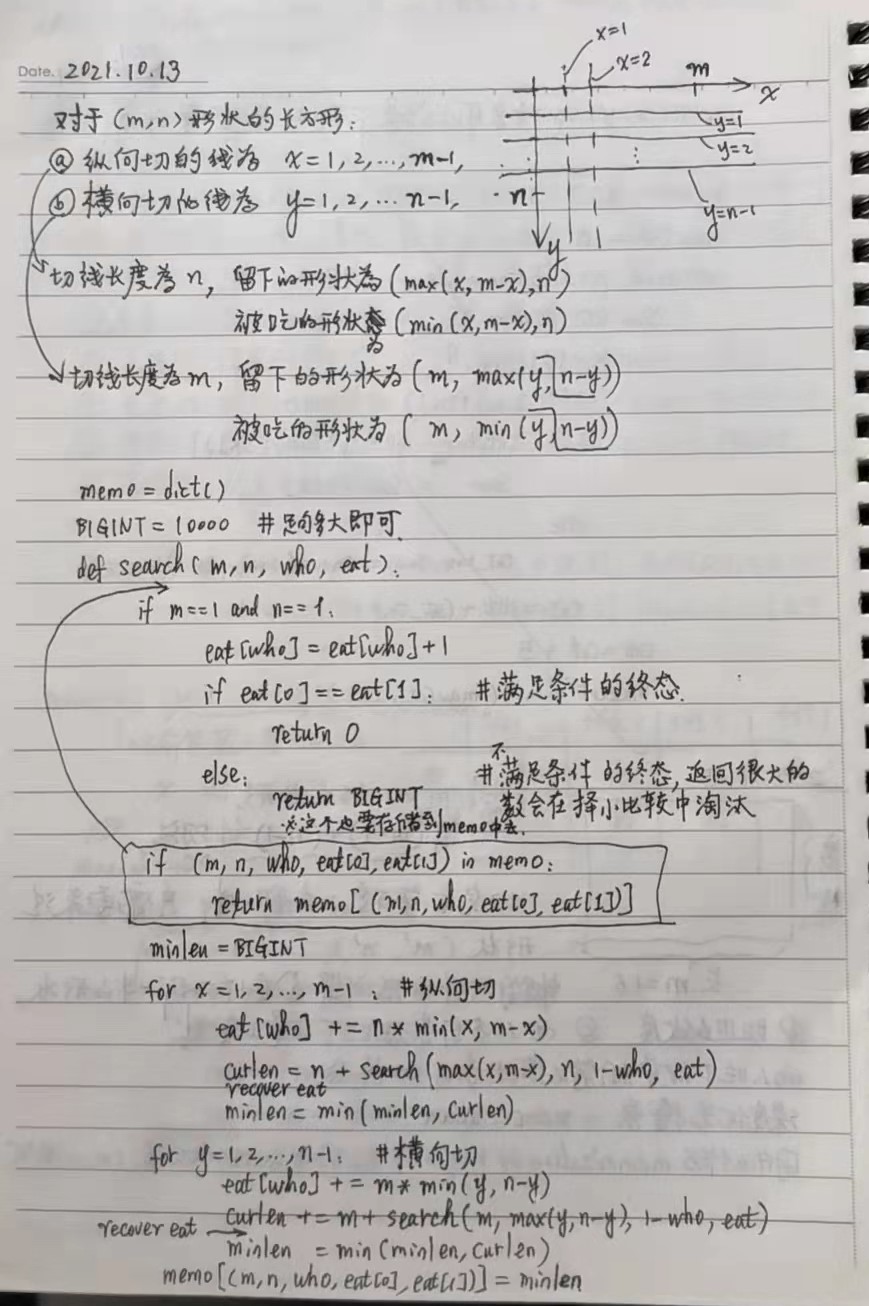 Date. 2021.10.13
x=1
x=2
m
x
y=1
y=2
n
y=n-1
y
对于(m,n)形状的长方形:
ⓐ 纵向切的线为 x=1,2,...,m-1,
ⓑ 横向切的线为 y=1,2,...n-1,
切线长度为n, 留下的形状为(max(x,m-x),n)
被吃的形状为(min(x,m-x),n)
切线长度为m, 留下的形状为(m, max(y,n-y))
被吃的形状为(m, min(y,n-y))
memo=dict()
BIGINT=10000 #足够大即可.
def search(m,n,who,eat):
if m==1 and n==1:
eat[who]=eat[who]+1
if eat[0]==eat[1]: #满足条件的终态.
return 0
else: #不满足条件的终态,返回很大的
return BIGINT 数会在择小比较中淘汰
※这个也要存储到memo中去.
if (m,n,who,eat[0],eat[1]) in memo:
return memo[(m,n,who,eat[0],eat[1])]
minlen=BIGINT
for x=1,2,...,m-1: #纵向切
eat[who] += n*min(x,m-x)
curlen = n + search(max(x,m-x),n,1-who,eat)
recover eat
minlen=min(minlen,curlen)
for y=1,2,...,n-1: #横向切
eat[who] += m*min(y,n-y)
curlen += m+search(m,max(y,n-y),1-who,eat)
recover eat
minlen = min(minlen,curlen)
memo[(m,n,who,eat[0],eat[1])]=minlen